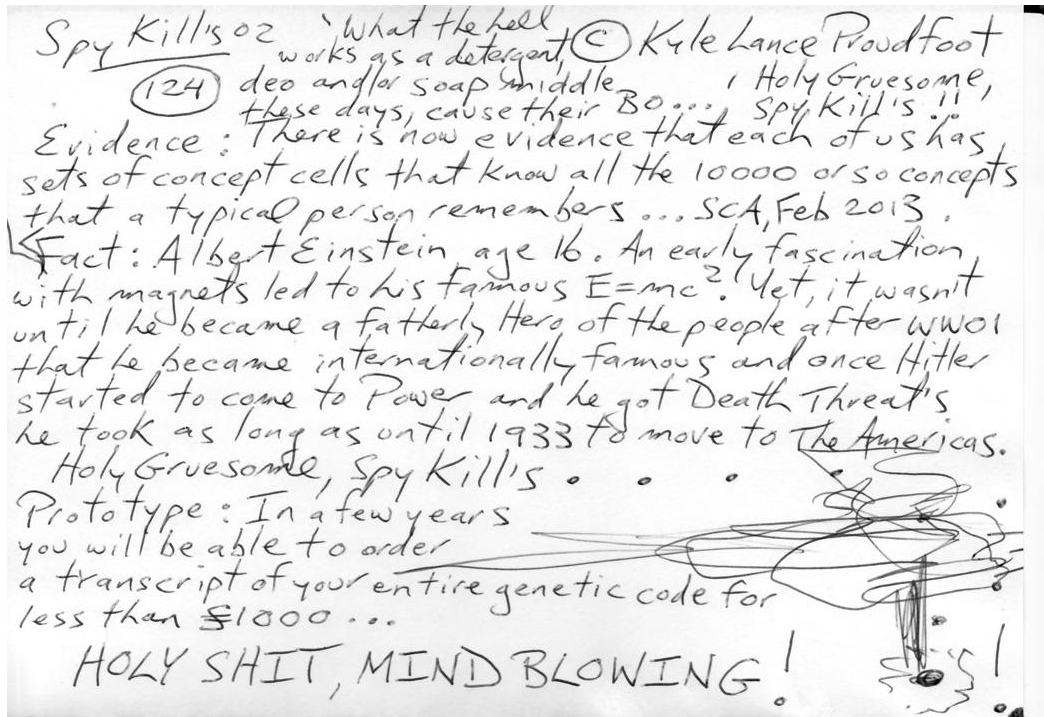 Spy Kill's 02 'What the hell © Kyle Lance Proudfoot
works as a detergent,
124 deo and/or soap middle, Holy Gruesome,
these days, cause their BO..., Spy Kill's!!
Evidence: There is now evidence that each of us has
sets of concept cells that know all the 10000 or so concepts
that a typical person remembers ... SCA, Feb 2013.
Fact: Albert Einstein, age 16. An early fascination
with magnets led to his famous E=mc². Yet, it wasn't
until he became a fatherly Hero of the people after WW01
that he became internationally famous and once Hitler
started to come to Power and he got Death Threat's
he took as long as until 1933 to move to The Americas.
Holy Gruesome, Spy Kill's . . .
Prototype: In a few years
you will be able to order
a transcript of your entire genetic code for
less than £1000 ...
HOLY SHIT, MIND BLOWING! !